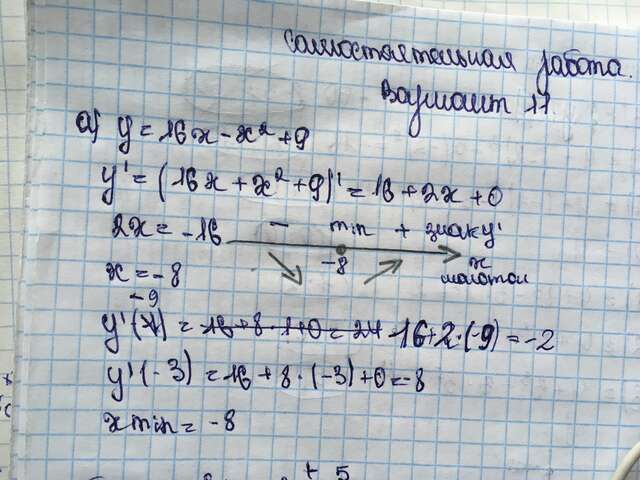 Самостоятельная работа.
Вариант 11
а) y = 16x - x² + 9
y' = (16x + x² + 9)' = 16 + 2x + 0
2x = -16 - min + знак y'
-8 x
x = -8
-9
y'(4) = 16+8·1+0=24 16+2·(-9) = -2
y'(-3) = 16 + 8·(-3)+0=-8
x min = -8
+ 5